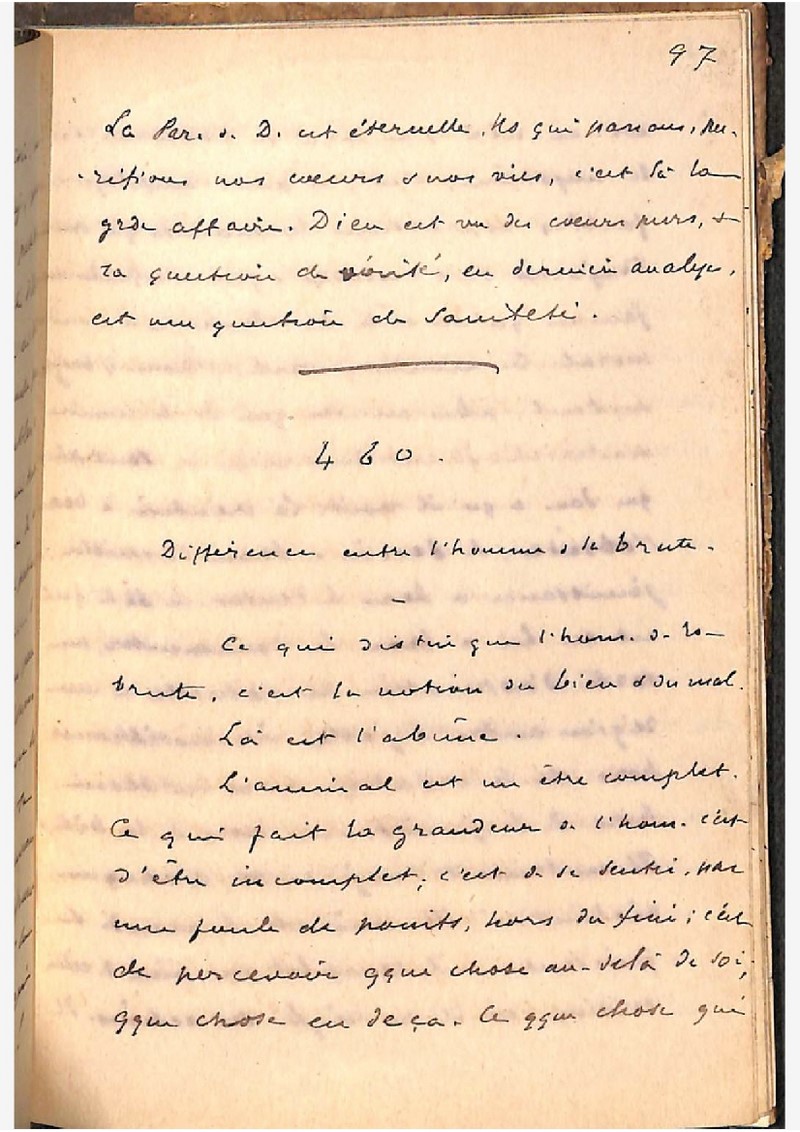 97
La Par. d. D. est éternelle. Ns qui passons, pu-
-rifions nos cœurs & nos vies, c'est là la
grde affaire. Dieu est vu des cœurs purs, &
la question de vérité, en dernière analyse,
est une question de sainteté.
460.
Différence entre l'homme & la brute.
Ce qui distingue l'hom. de la
brute, c'est la notion du bien & du mal.
Là est l'abîme.
L'animal est un être complet.
Ce qui fait la grandeur de l'hom. c'est
d'être incomplet; c'est de se sentir, par
une foule de points, hors du fini; c'est
de percevoir qque chose au-delà de soi,
qque chose en deça. Ce qque chose qui